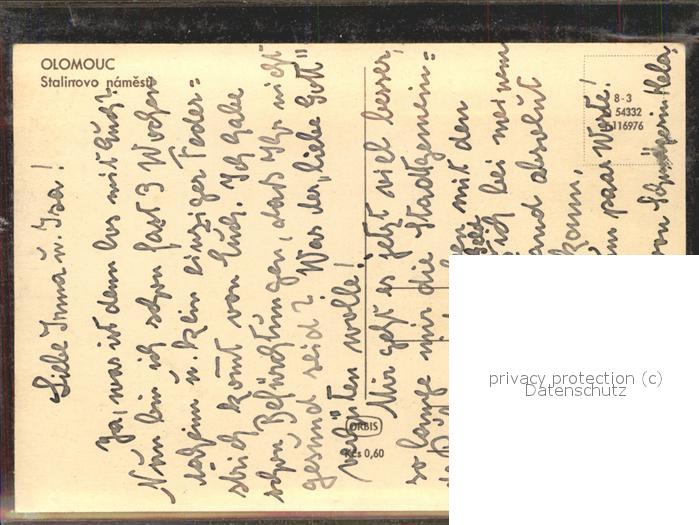 OLOMOUC
Stalinovo náměstí
8-3
54332
116976
ORBIS
Kčs 0,60
Liebe Imma u. Isa!
Ja, was ist denn los mit Euch?
Nun bin ich schon fast 3 Wochen
daheim u. kein einziger Feder=
strich kommt von Euch. Ich habe
schon Befürchtungen, dass Ihr nicht
gesund seid? Was der „liebe Gott"
verhüten wolle!
Mir geht es jetzt viel besser,
so lange mir die Stadtgemein=
mit den
ich bei meinem
und absolut
kann,
ein paar Worte!
von Schwägerin Hela
privacy protection (c)
Datenschutz